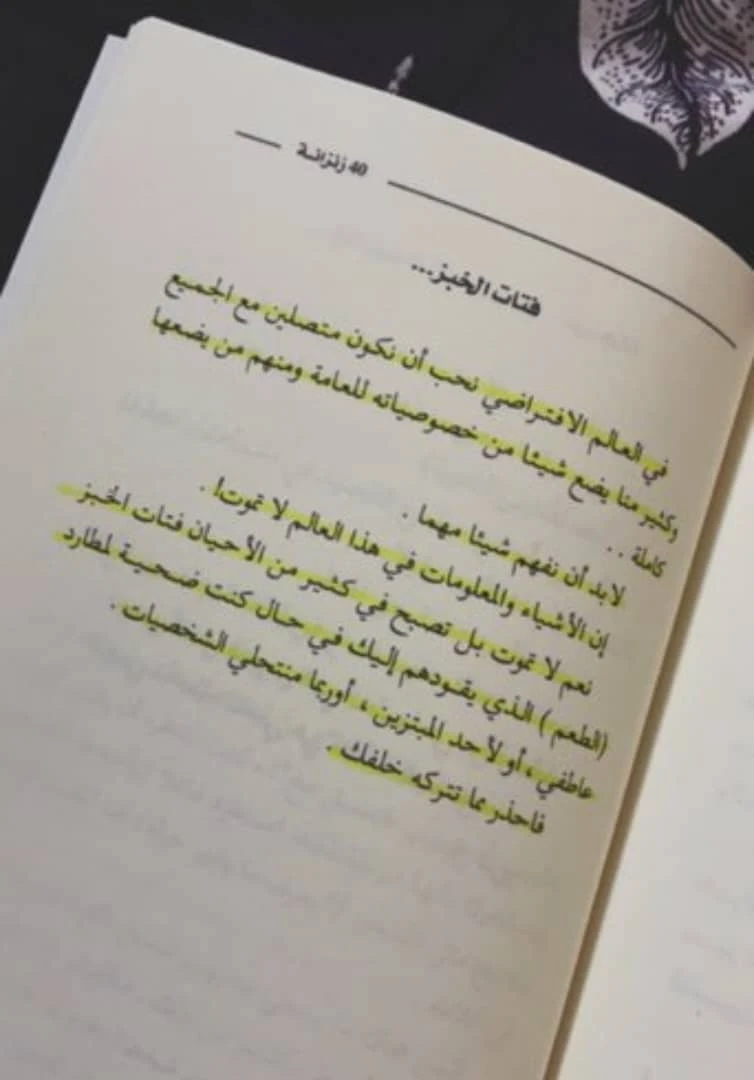 40 زنزانة
فتات الخبز...
في العالم الافتراضي نحب أن نكون متصلين مع الجميع
وكثير منا يضع شيئا من خصوصياته للعامة ومنهم من يضعها
كاملة ..
لا بد أن نفهم شيئا مهما .
إن الأشياء والمعلومات في هذا العالم لا تموت! .
نعم لا تموت بل تصبح في كثير من الأحيان فتات الخبز
(الطعم) الذي يقودهم إليك في حال كنت ضحية لمطارد
عاطفي ، أو لأحد المبتزين ، أوربما منتحلي الشخصيات .
فاحذر بما تتركه خلفك .